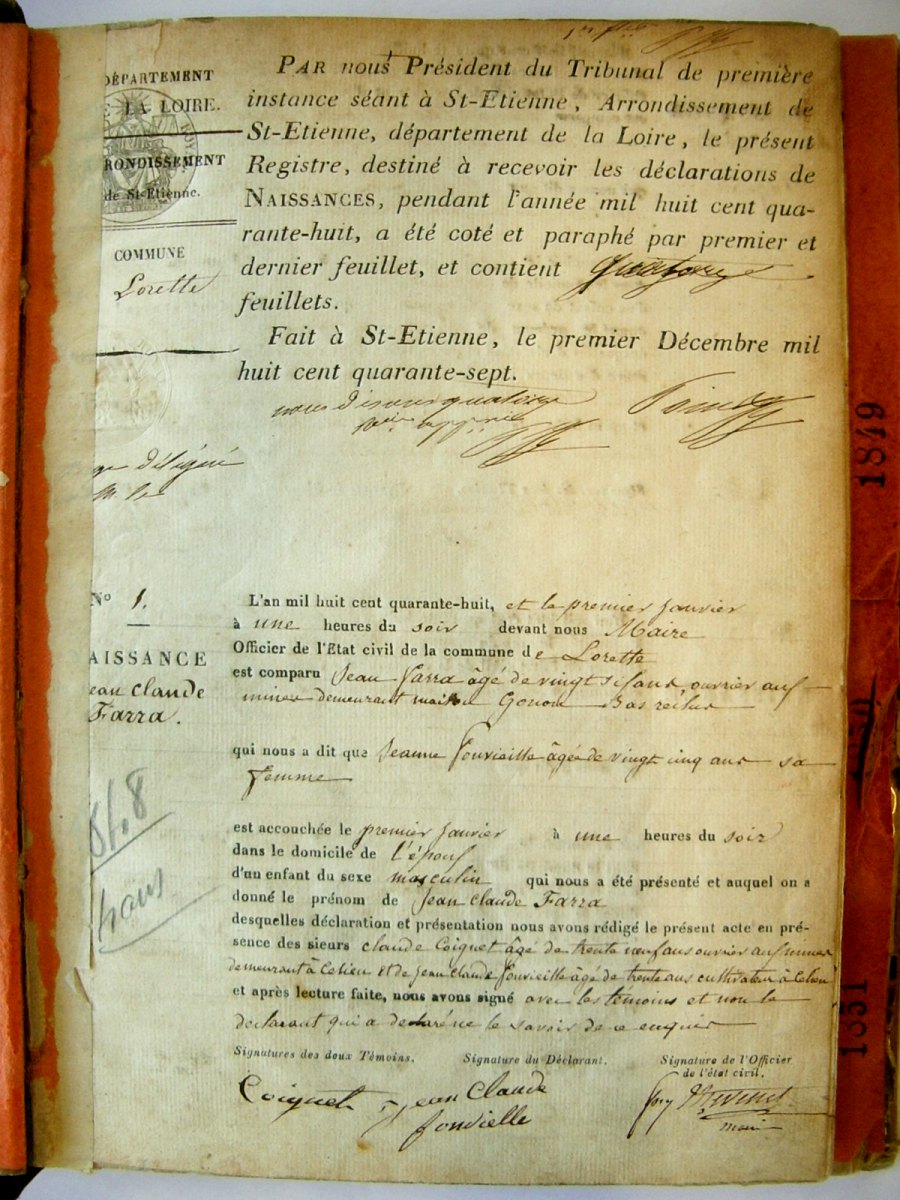 DÉPARTEMENT
LA LOIRE.
RRONDISSEMENT
de St-Etienne.
COMMUNE
Lorette
PAR nous Président du Tribunal de première
instance séant à St-Etienne, Arrondissement de
St-Etienne, département de la Loire, le présent
Registre, destiné à recevoir les déclarations de
NAISSANCES, pendant l'année mil huit cent qua-
rante-huit, a été coté et paraphé par premier et
dernier feuillet, et contient quatorze
feuillets.
Fait à St-Etienne, le premier Décembre mil
huit cent quarante-sept.
nous disons quatorze
délégué
No 1.
AISSANCE
ean Claude
Farra.
L'an mil huit cent quarante-huit, et le premier janvier
à une heures du soir devant nous Maire
Officier de l'Etat civil de la commune de Lorette
est comparu Jean Farra âgé de vingt six ans, ouvrier aux
mines demeurant maison Gonon
qui nous a dit que Jeanne Fonvieille âgée de vingt cinq ans sa
femme
est accouchée le premier janvier à une heures du soir
dans le domicile de l'époux
d'un enfant du sexe masculin qui nous a été présenté et auquel on a
donné le prénom de Jean Claude Farra
desquelles déclaration et présentation nous avons rédigé le présent acte en pré-
sence des sieurs Claude Coignet âgé de trente neuf ans ouvrier aux mines
demeurant à Celieu et de Jean Claude Fonvieille âgé de trente ans cultivateur à Celieu
et après lecture faite, nous avons signé avec les témoins et non le
déclarant qui a déclaré ne le savoir de ce enquis
Signatures des deux Témoins. Signature du Déclarant. Signature de l'Officier
de l'état civil.
Coignet jean Claude
fonvielle
maire
1849
1851